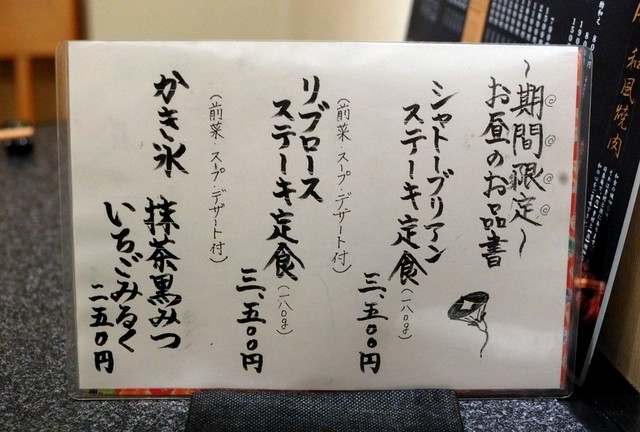 〜期間限定〜
お昼のお品書
シャトーブリアン
ステーキ定食(一八〇g)
三、五〇〇円
(前菜・スープ・デザート付)
リブロース
ステーキ定食(一八〇g)
三、五〇〇円
(前菜・スープ・デザート付)
かき氷 抹茶黒みつ
いちごみるく
二五〇円
和風焼肉